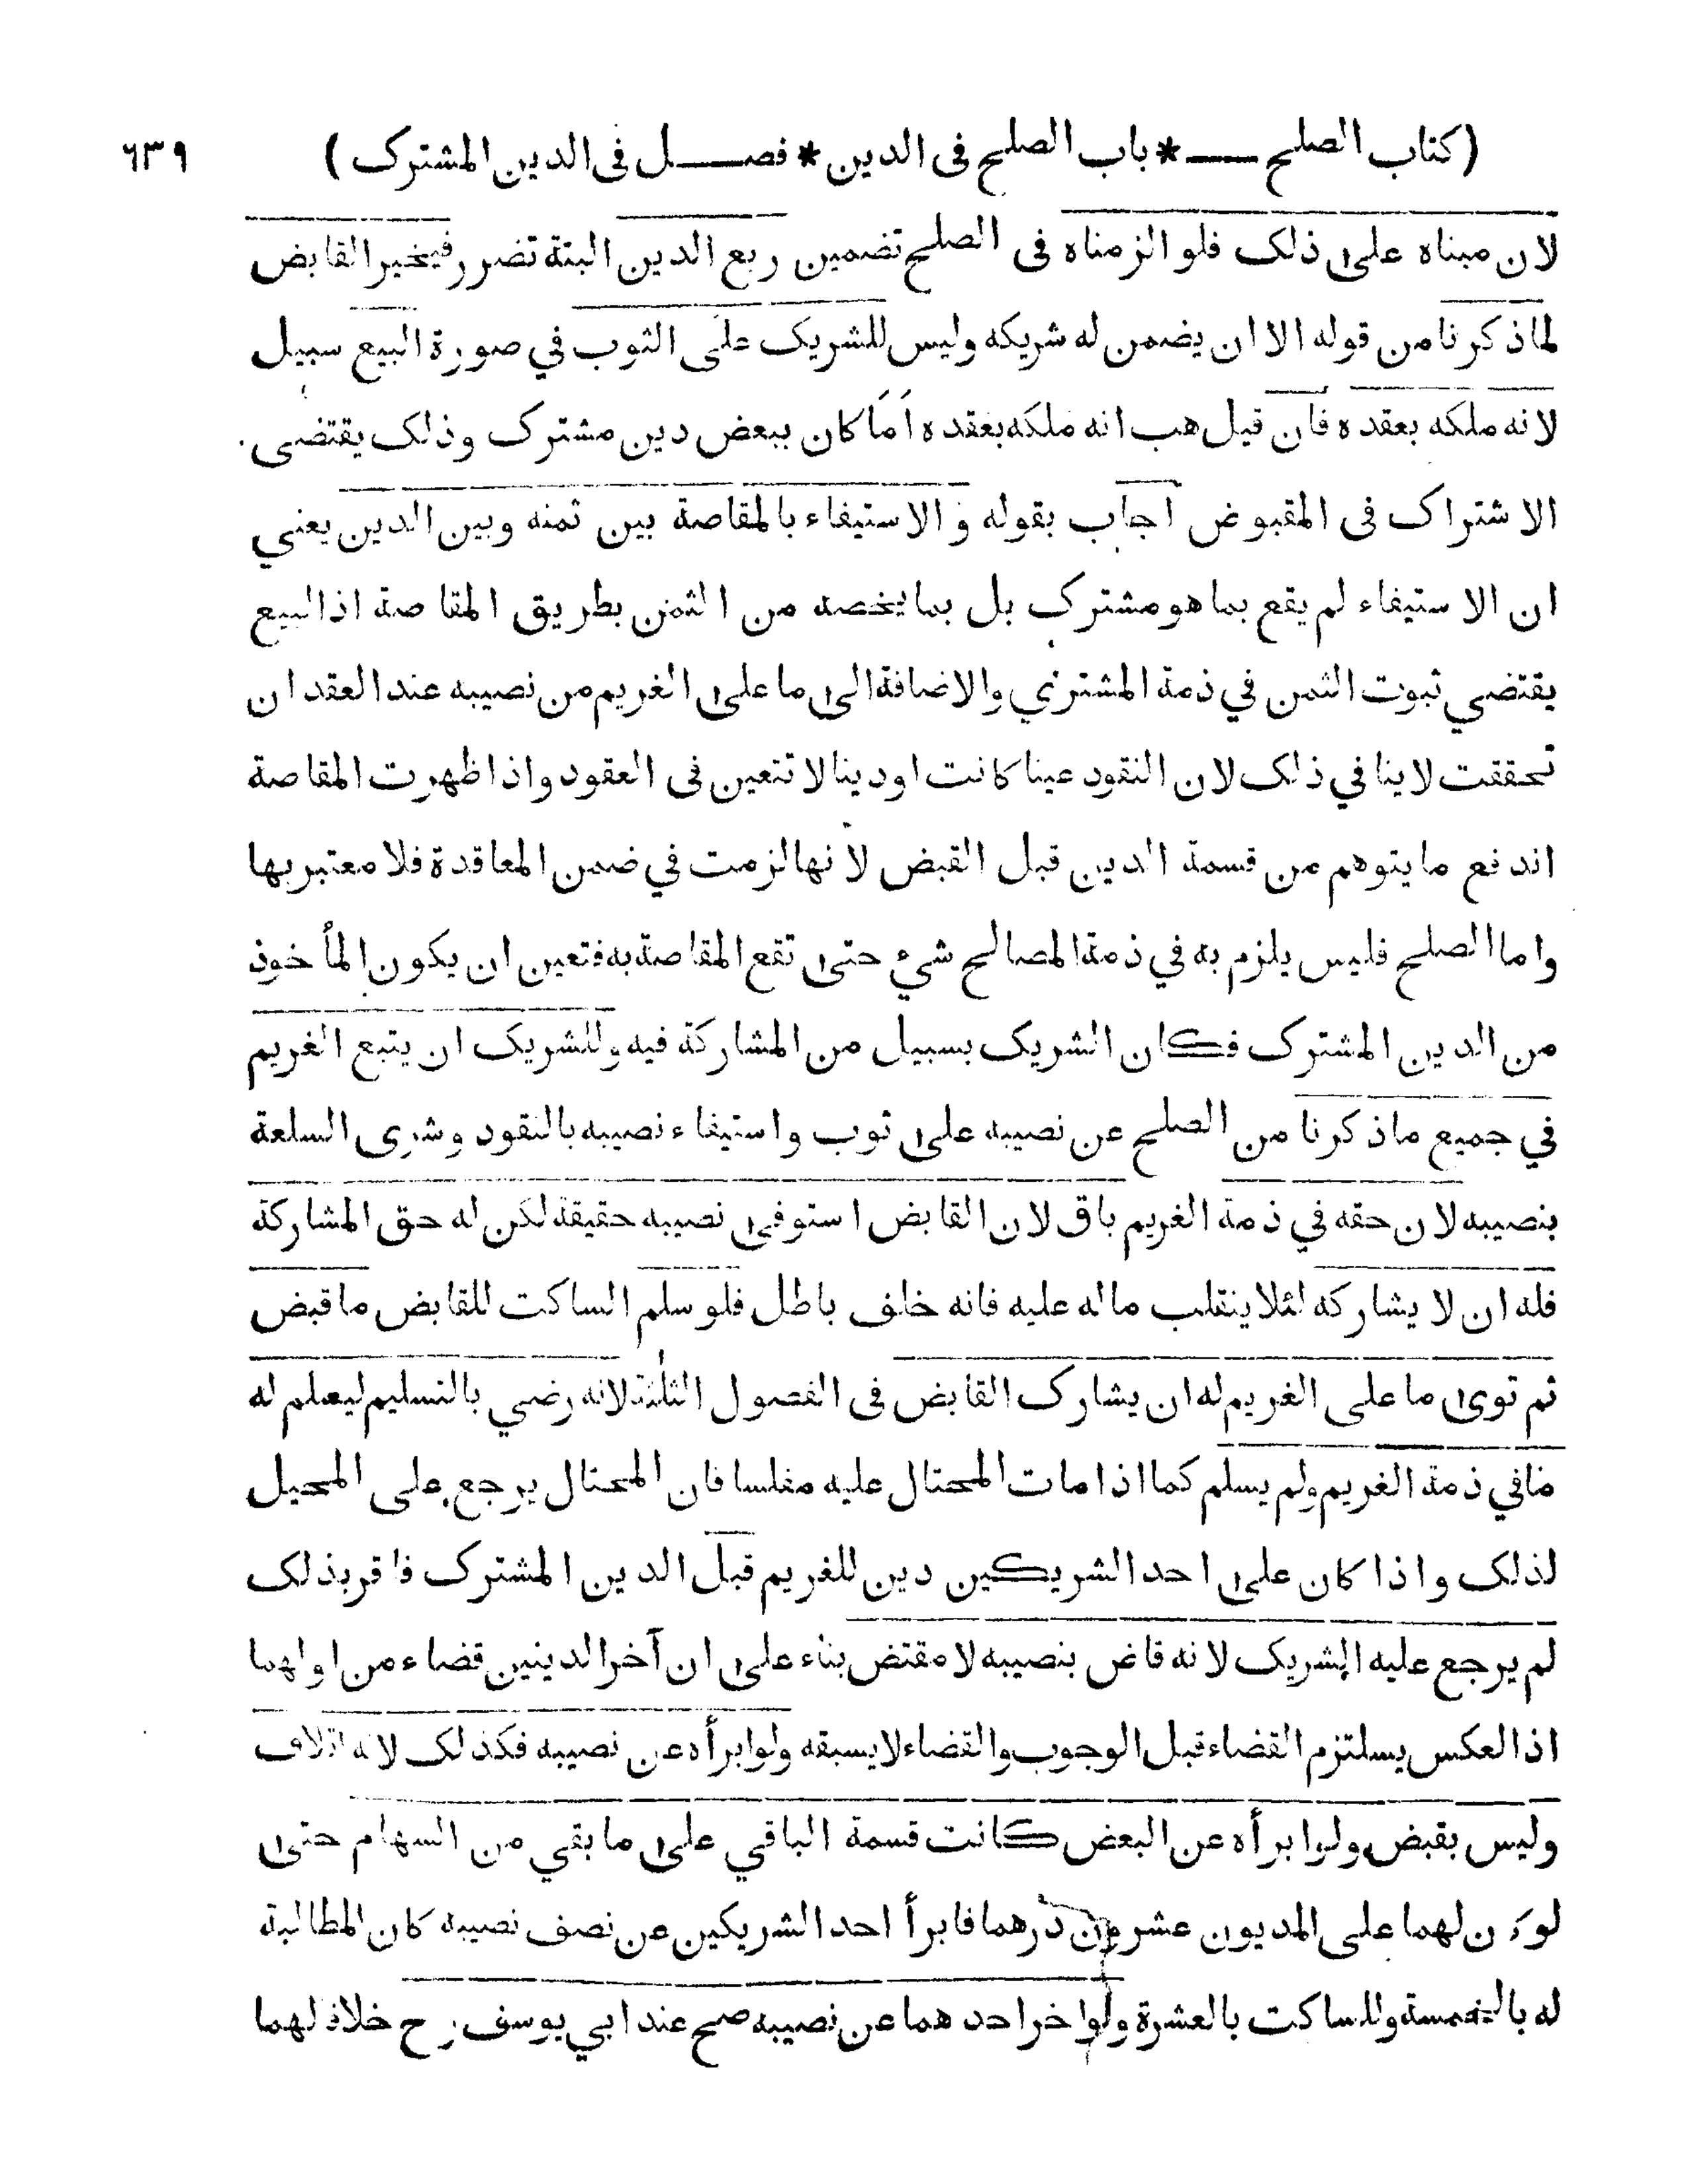 (كتاب الصلح ــــ * باب الصلح فى الدين * فصــــل فى الدين المشترك) ٦٣٩
لان مبناه على ذلك فلو الزمناه فى الصلح تضمين ربع الدين البتة تضرر فيخير القابض
لما ذكرنا من قوله الا ان يضمن له شريكه وليس للشريك على الثوب في صورة البيع سبيل
لانه ملكه بعقده فان قيل هب انه ملكه بعقده اما كان ببعض دين مشترك وذلك يقتضى
الاشتراك فى المقبوض اجاب بقوله و الاستيفاء بالمقاصة بين ثمنه وبين الدين يعني
ان الاستيفاء لم يقع بما هو مشترك بل بما يخصه من الثمن بطريق المقاصة اذ البيع
يقتضي ثبوت الثمن في ذمة المشتري والاضافة الى ما على الغريم من نصيبه عند العقد ان
تحققت لا ينافي ذلك لان النقود عينا كانت او دينا لا تتعين فى العقود واذا ظهرت المقاصة
اندفع ما يتوهم من قسمة الدين قبل القبض لانها لزمت في ضمن المعاقدة فلا معتبر بها
واما الصلح فليس يلزم به في ذمة المصالح شيء حتى تقع المقاصة به فتعين ان يكون المأخوذ
من الدين المشترك فكان الشريك بسبيل من المشاركة فيه وللشريك ان يتبع الغريم
في جميع ما ذكرنا من الصلح عن نصيبه على ثوب واستيفاء نصيبه بالنقود وشرى السلعة
بنصيبه لان حقه في ذمة الغريم باق لان القابض استوفى نصيبه حقيقة لكن له حق المشاركة
فله ان لا يشاركه لئلا ينقلب ماله عليه فانه خلف باطل فلو سلم الساكت للقابض ما قبض
ثم توى ما على الغريم له ان يشارك القابض فى الفصول الثلثة لانه رضي بالتسليم ليعلم له
ما في ذمة الغريم ولم يسلم كما اذا مات المحتال عليه مفلسا فان المحتال يرجع على المحيل
لذلك واذا كان على احد الشريكين دين للغريم قبل الدين المشترك فاقر بذلك
لم يرجع عليه الشريك لانه قاض بنصيبه لا مقتض بناء على ان آخر الدينين قضاء من اولهما
اذ العكس يسلتزم القضاء قبل الوجوب والقضاء لا يسبقه ولو ابرأه عن نصيبه فكذلك لانه اتلاف
وليس بقبض ولو ابرأه عن البعض كانت قسمة الباقي على ما بقي من السهام حتى
لو ن لهما على المديون عشرون درهما فابرأ احد الشريكين عن نصف نصيبه كان المطالبة
له بالخمسة وللساكت بالعشرة ولو اخر احدهما عن نصيبه صح عند ابي يوسف رح خلافا لهما